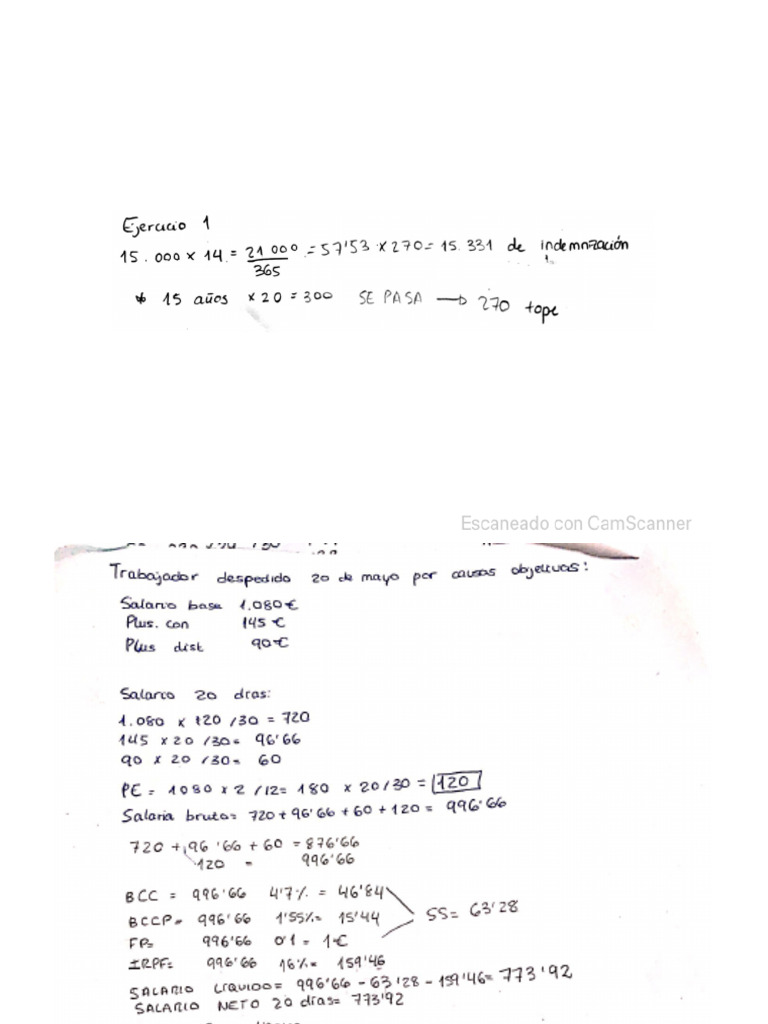 Ejercicio 1
15.000 x 14 = 21 000 / 365 = 57'53 x 270 = 15.331 de indemnización
* 15 años x 20 = 300 SE PASA → 270 tope
Escaneado con CamScanner
Trabajador despedido 20 de mayo por causas objetivas:
Salario base 1.080€
Plus. con 145 €
Plus dist 90€
Salario 20 dias:
1.080 x 20 /30 = 720
145 x 20 /30 = 96'66
90 x 20 /30 = 60
PE = 1080 x 2 /12 = 180 x 20/30 = 120
Salario bruto = 720 + 96'66 + 60 + 120 = 996'66
720 + 96'66 + 60 = 876'66
120 = 996'66
BCC = 996'66 4'7% = 46'84
BCCP = 996'66 1'55% = 15'44
SS = 63'28
FP = 996'66 0'1 = 1€
IRPF = 996'66 16% = 159'46
SALARIO LIQUIDO = 996'66 - 63'28 - 159'46 = 773'92
SALARIO NETO 20 dias = 773'92